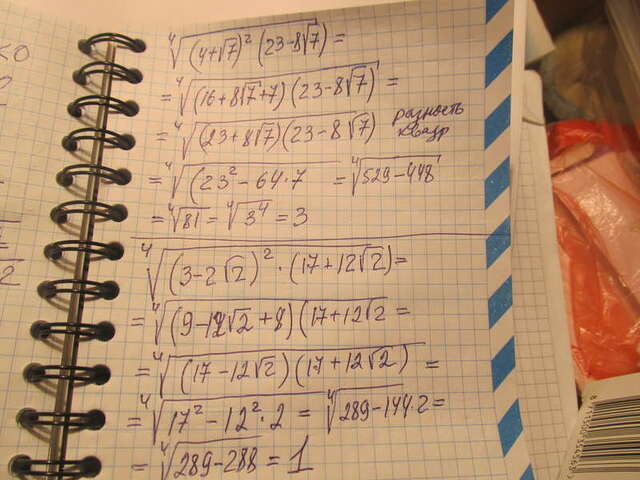 ко
2
⁴√((4+√7)² (23-8√7)) =
= ⁴√((16+8√7+7)(23-8√7)) =
= ⁴√((23+8√7)(23-8√7)) разность квадр
= ⁴√((23² - 64·7 = ⁴√(529-448)
= ⁴√81 = ⁴√3⁴ = 3
⁴√((3-2√2)² · (17+12√2)) =
= ⁴√((9-12√2+8)(17+12√2 =
= ⁴√((17-12√2)(17+12√2)) =
= ⁴√(17² - 12²·2) = ⁴√(289-144·2) =
= ⁴√(289-288) = 1
2